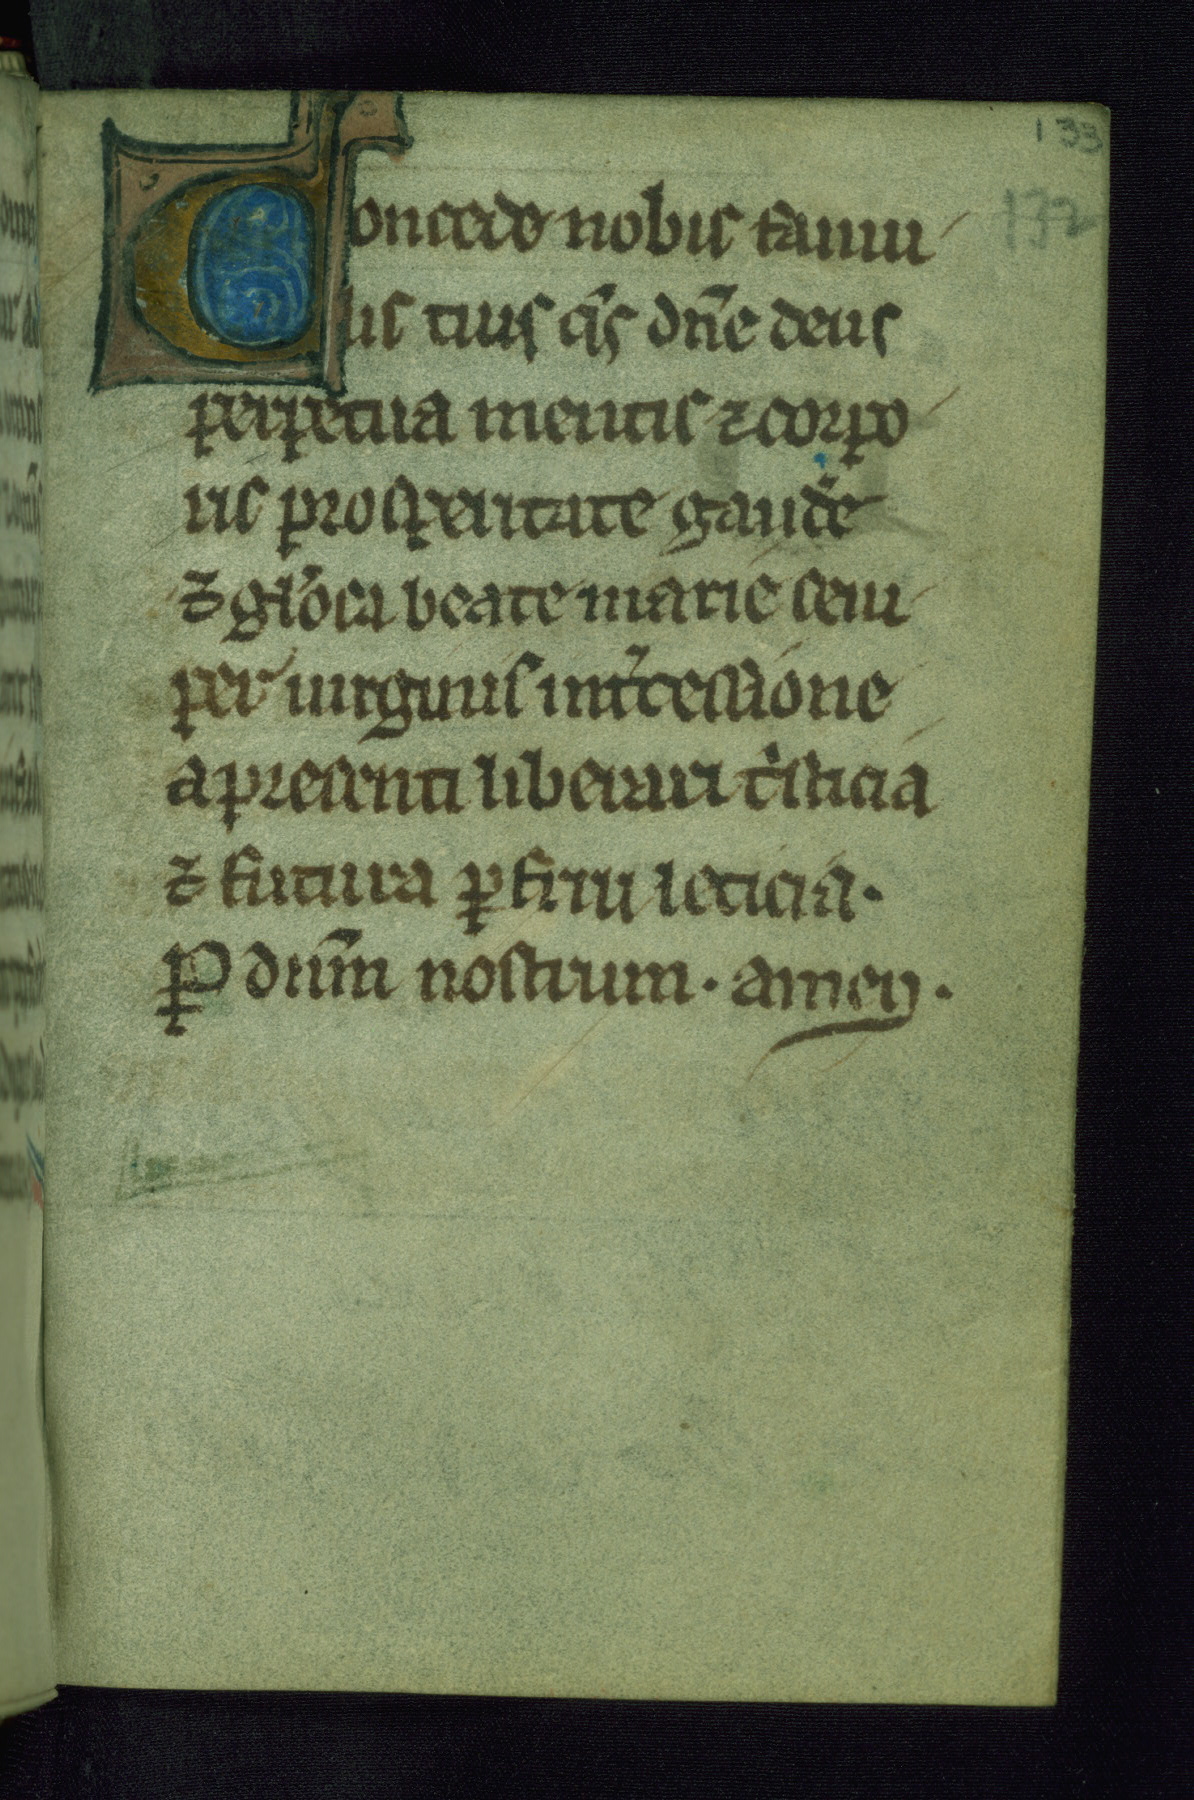 133
132
Concede nobis famu
lis tuis q̃s dñe deus
perpetua mentis ⁊ corpo
ris prosperitate gaudẽ
⁊ gl̃osa beate marie sem
per uirginis intˀcessione
a presenti liberari tⁱsticia
⁊ futura ꝑfrui leticia.
P dnm̃ nostrum. amen.